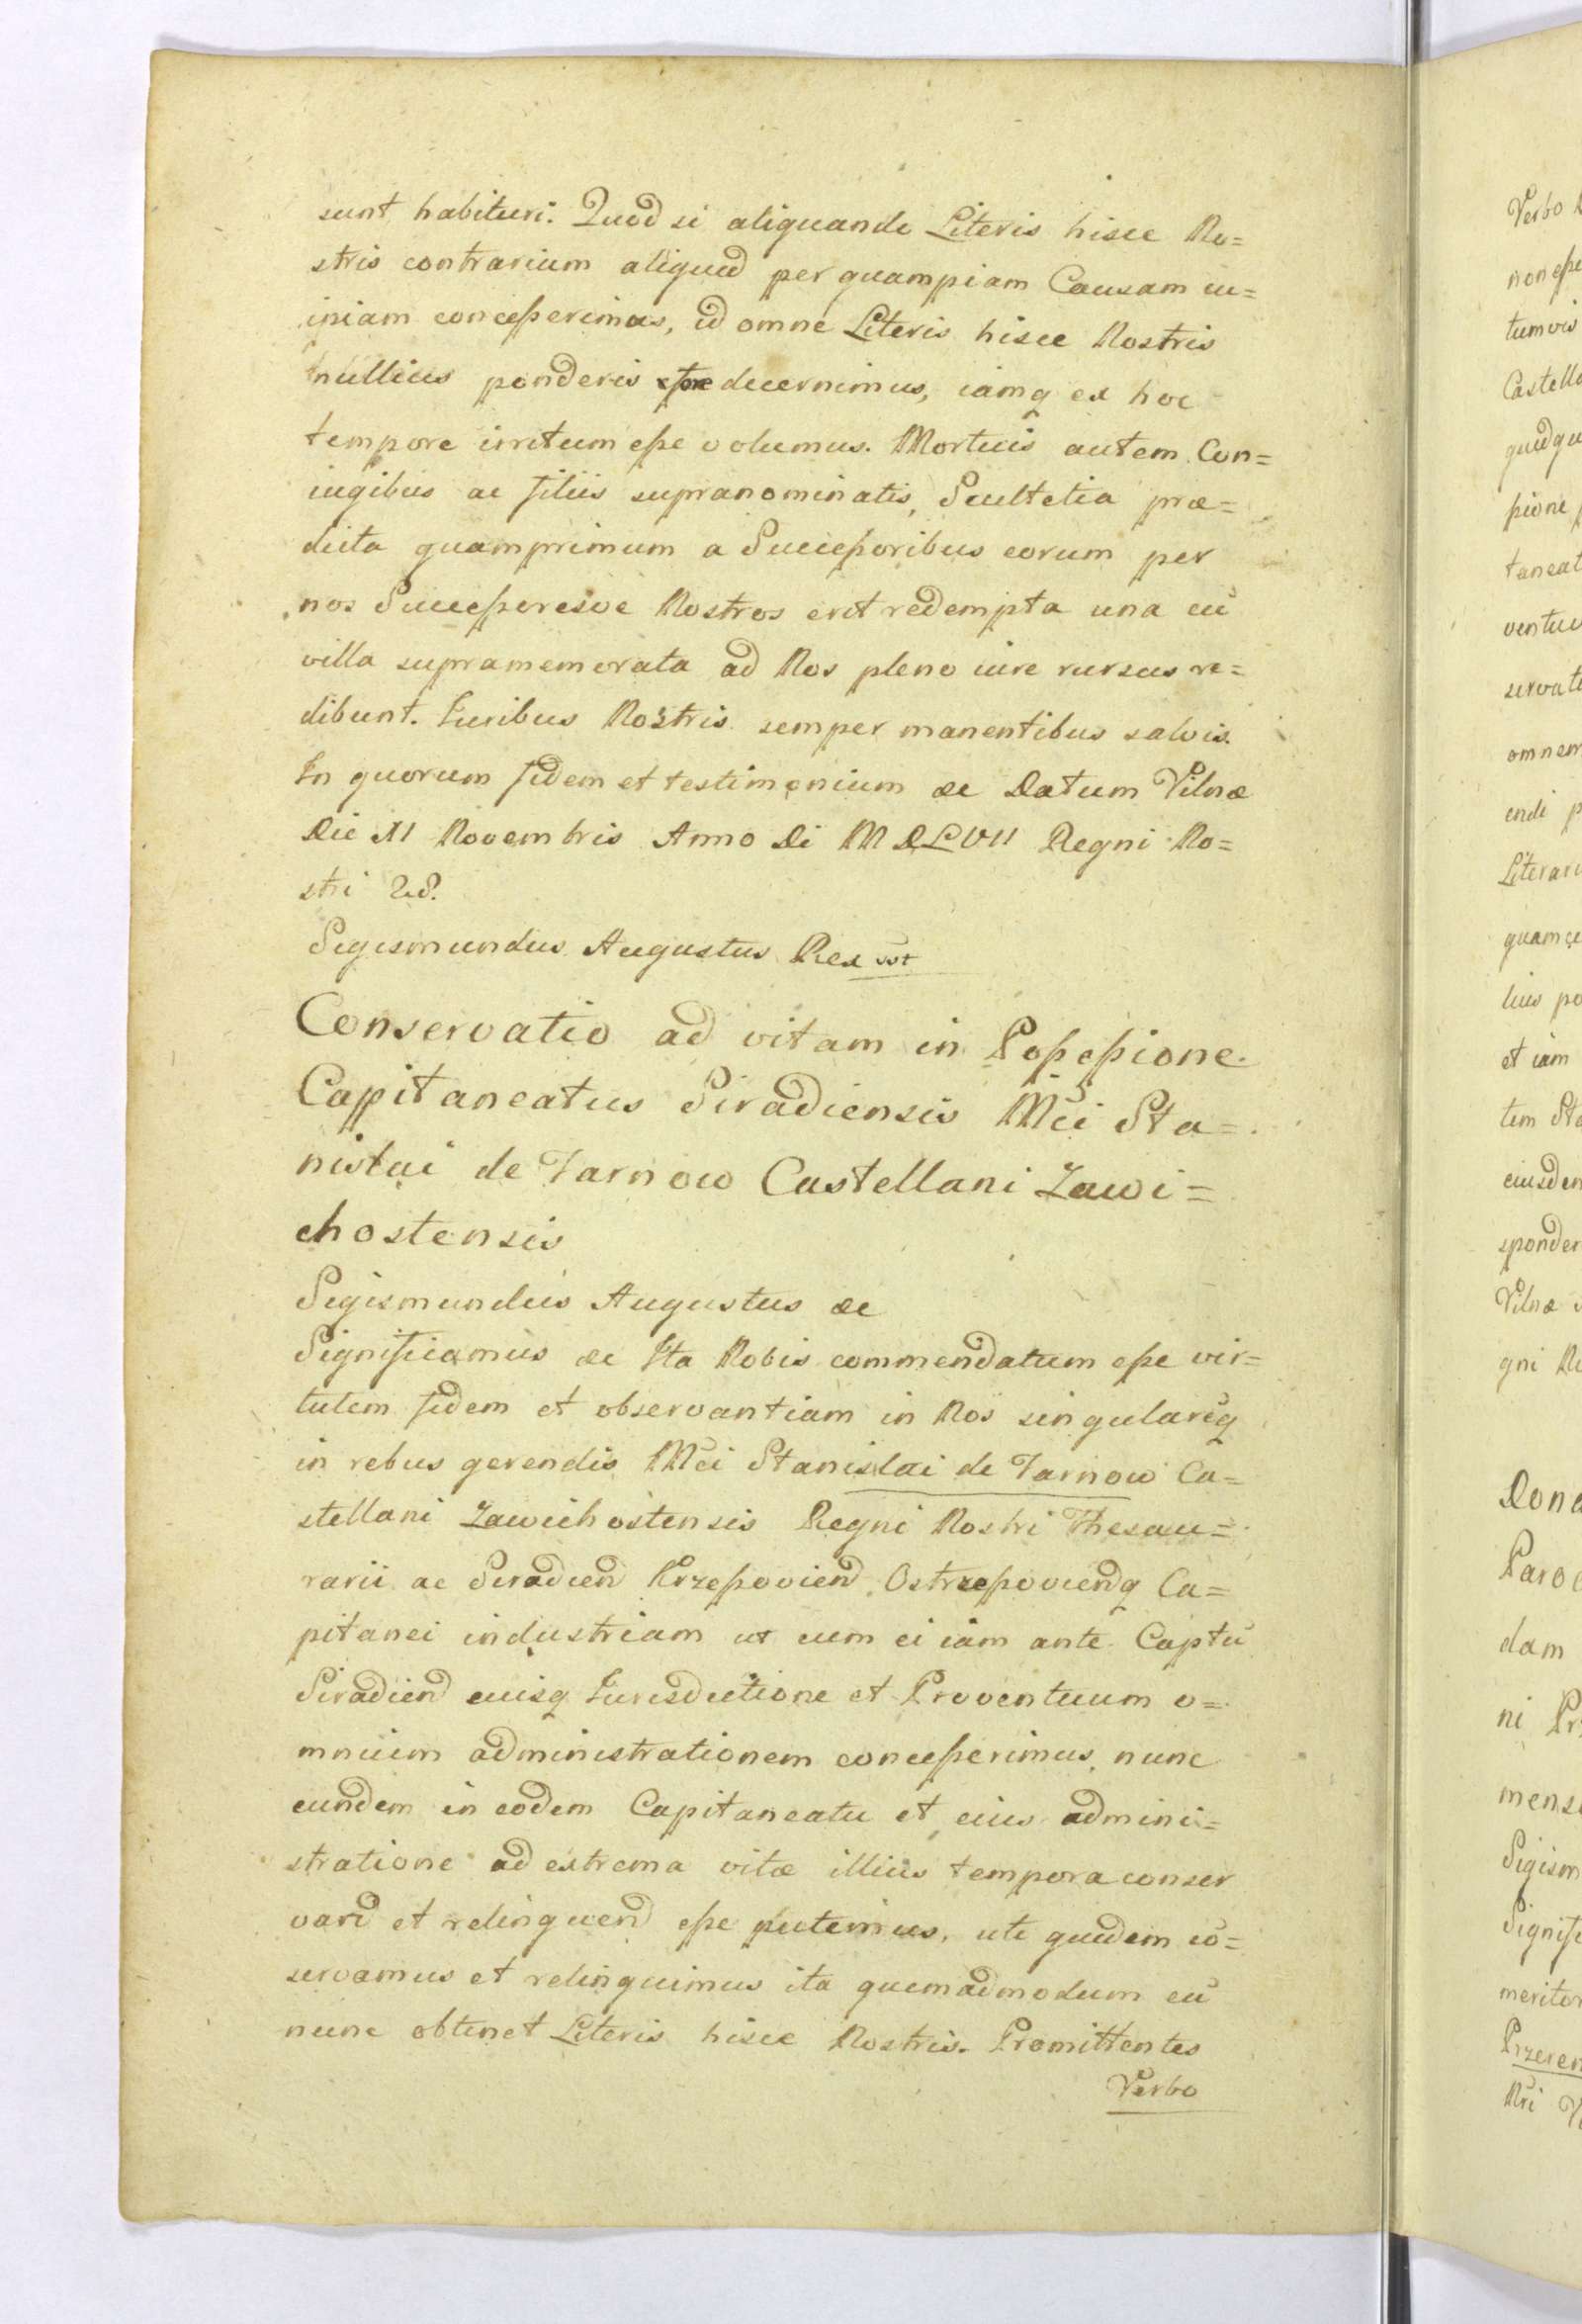 sunt habituri. Quod si aliquando Literis hisce No=
stris contrarium aliquid per quampiam Causam cu=
ipiam concesserimus, id omne Literis hisce Nostris
nullius ponderis fore decernimus, iamq ex hoc
tempore irritum esse volumus. Mortuis autem Con=
iugibus ac filiis supranominatis, Scultetia præ=
dicta quamprimum a Successoribus eorum per
nos Successoresve Nostros erit redempta una cū
villa supramemorata ad Nos pleno iure rursus re=
dibunt. Iuribus Nostris semper manentibus salvis.
In quorum fidem et testimonium &c Datum Vilnæ
Die XI Novembris Anno Di MDLVII Regni No=
stri 28.
Sigismundus Augustus Rex sst
Conservatio ad vitam in Possessione
Capitaneatus Siradiensis Mci Sta=
nislai de Tarnow Castellani Zawi=
chostensis
Sigismundus Augustus &c
Significamus &c Ita Nobis commendatum esse vir=
tutem fidem et observantiam in Nos singularēq
in rebus gerendis Mci Stanislai de Tarnow Ca=
stellani Zawichostensis Regni Nostri Thesau=
rarii ac Siradien Krzepovien Ostrzessoviensq Ca=
pitanei industriam ut cum ei iam ante Captū
Siradien cuiusq Iurisdictione et Proventuum o=
mnium administrationem concesserimus, nunc
eundem in eodem Capitaneatu et eius admini=
stratione ad extrema vitæ illius tempora conser
vand et relinquend esse putemus, uti quidem cō=
servamus et relinquimus ita quemadmodum eū
nunc obtinet Literis hisce Nostris. Promittentes
Verbo